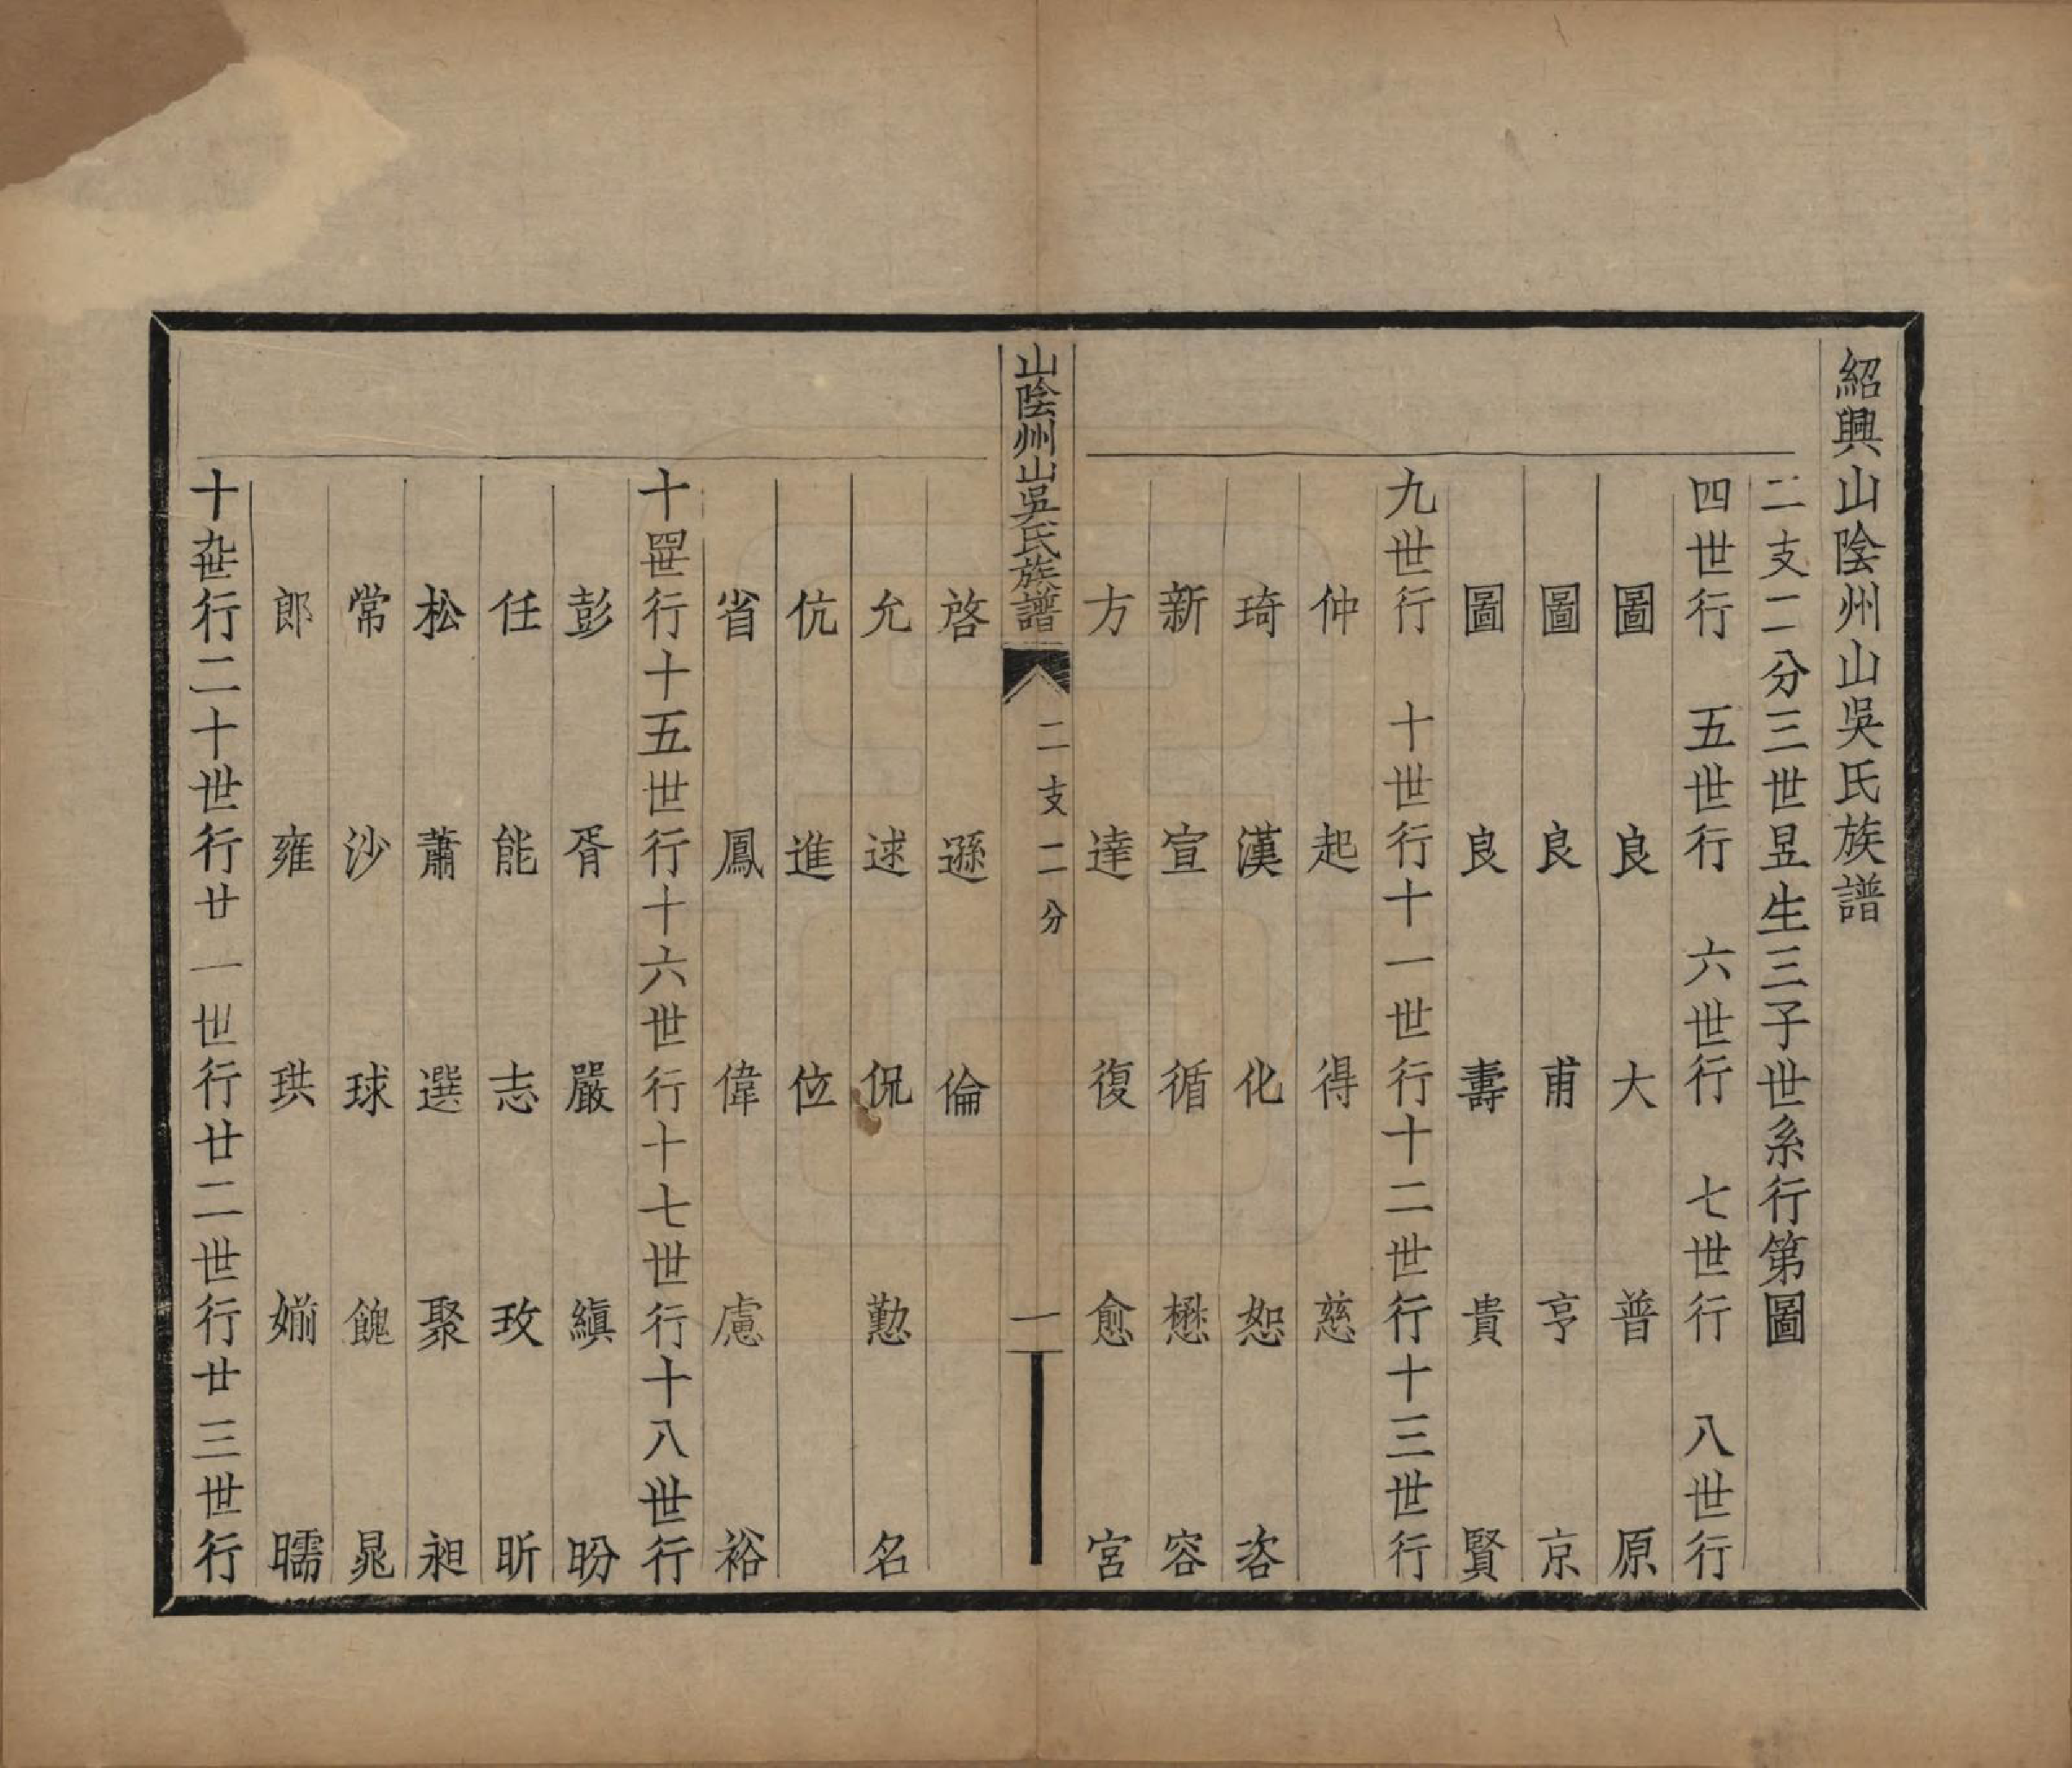 紹興山陰州山吳氏族譜
二支二分三世昱生三子世系行第圖
四世行 五世行 六世行 七世行 八世行
圖 良 大 普 原
圖 良 甫 亨 京
圖 良 壽 貴 賢
九世行 十世行 十一世行 十二世行 十三世行
仲 起 得 慈
琦 漢 化 恕 咨
新 宣 循 懋 容
方 達 復 愈 宮
山陰州山吳氏族譜 二支二分 一
啓 遜 倫
允 逑 侃 懃 名
伉 進 位
省 鳳 偉 慮 裕
十四世行 十五世行 十六世行 十七世行 十八世行
彭 胥 嚴 縝 昐
任 能 志 玫 昕
松 蕭 選 聚 昶
常 沙 球 餽 晁
郎 雍 珙 媊 曘
十九世行 二十世行 廿一世行 廿二世行 廿三世行